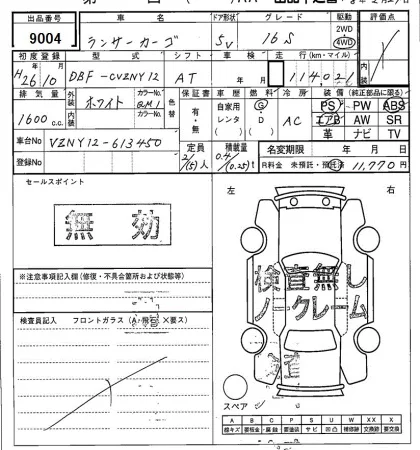 出品番号 車名 ドア形状 グレード 駆動 評価点
9004 ランサーカーゴ 5V 16S 2WD 4WD
初度登録 型式 シフト 車検 走行(km・マイル)
H26 10 DBF-CVZNY12 AT
排気量 外装 カラーNo. 色替 保証書 車歴 燃料 冷房 装備(純正部品に限る)
ホワイト QM1 有・無 自家用 G PS PW ABS
1600 c.c. 内装 カラーNo. レンタ D AC エアB AW SR
革 ナビ TV
車台No VZNY12-613450 定員 2/(5)人 積載量 0.4/(0.25)t 名変期限 年 月 日
登録No R料金 未預託・預託 11,770円
セールスポイント
無効
左 右
※注意事項記入欄(修復・不具合箇所および状態等)
検査員記入 フロントガラス(A・飛石 X要ス)
検査無し
ノークレーム
スペア
A B C P S U W X XX
線キズ 要板金 腐蝕 要塗装 サビ 凹凸 補修跡 交換跡 要交換